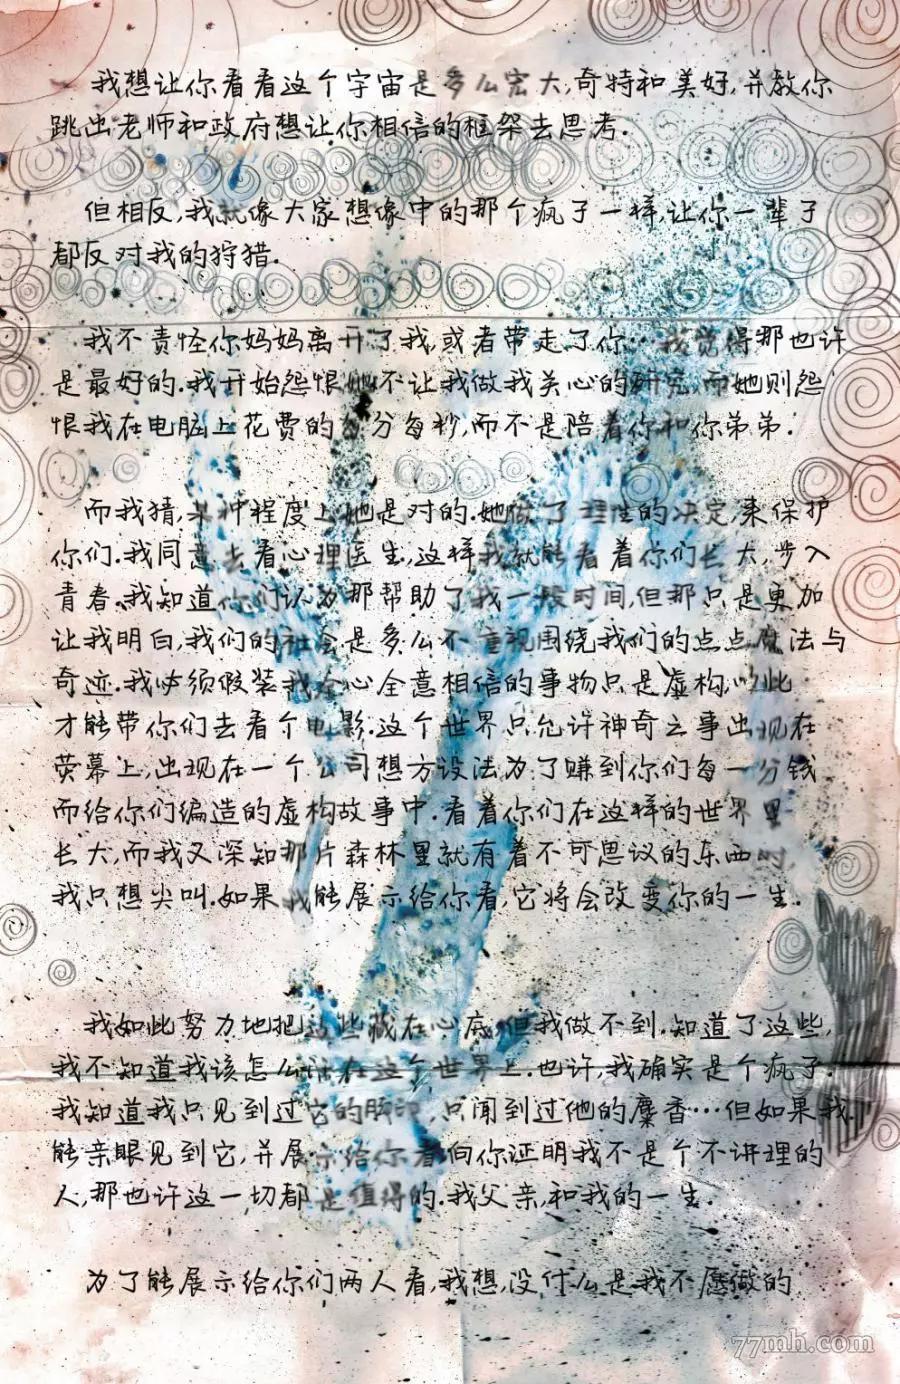 我想让你看看这个宇宙是多么宏大,奇特和美好,并教你
跳出老师和政府想让你相信的框架去思考.
但相反,我就像大家想像中的那个疯子一样,让你一辈子
都反对我的狩猎.
我不责怪你妈妈离开了我,或者带走了你…我觉得那也许
是最好的.我开始怨恨她不让我做我关心的研究,而她则怨
恨我在电脑上花费的每分每秒,而不是陪着你和你弟弟.
而我猜,某种程度上她是对的.她做了理性的决定,来保护
你们.我同意去看心理医生,这样我就能看着你们长大,步入
青春.我知道你们认为那帮助了我一段时间,但那只是更加
让我明白,我们的社会是多么不重视围绕我们的点点魔法与
奇迹.我必须假装我全心全意相信的事物只是虚构,以此
才能带你们去看个电影.这个世界只允许神奇之事出现在
荧幕上,出现在一个公司想方设法为了赚到你们每一分钱
而给你们编造的虚构故事中.看着你们在这样的世界里
长大,而我又深知那片森林里就有着不可思议的东西时,
我只想尖叫.如果我能展示给你看,它将会改变你的一生.
我如此努力地把这些藏在心底,但我做不到.知道了这些,
我不知道我该怎么活在这个世界上.也许,我确实是个疯子.
我知道我只见到过它的脚印,只闻到过他的麝香…但如果我
能亲眼见到它,并展示给你看,向你证明我不是个不讲理的
人,那也许这一切都是值得的.我父亲,和我的一生.
为了能展示给你们两人看,我想,没什么是我不愿做的
77mh.com